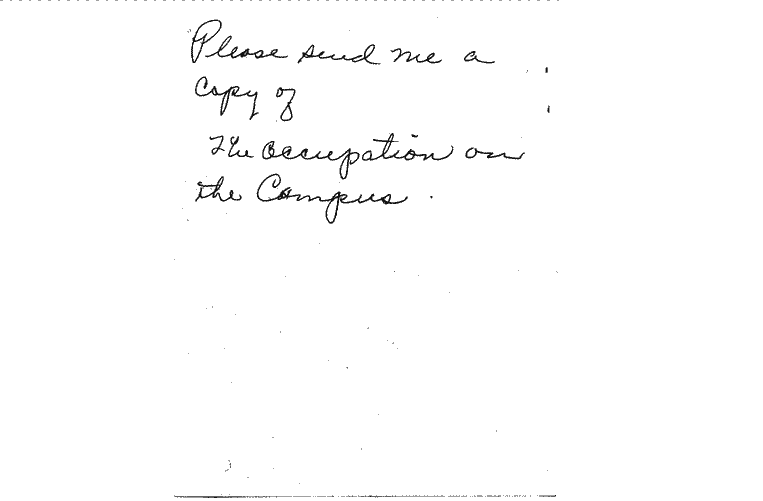 Please send me a
Copy of
The Occupation on
the Campus.